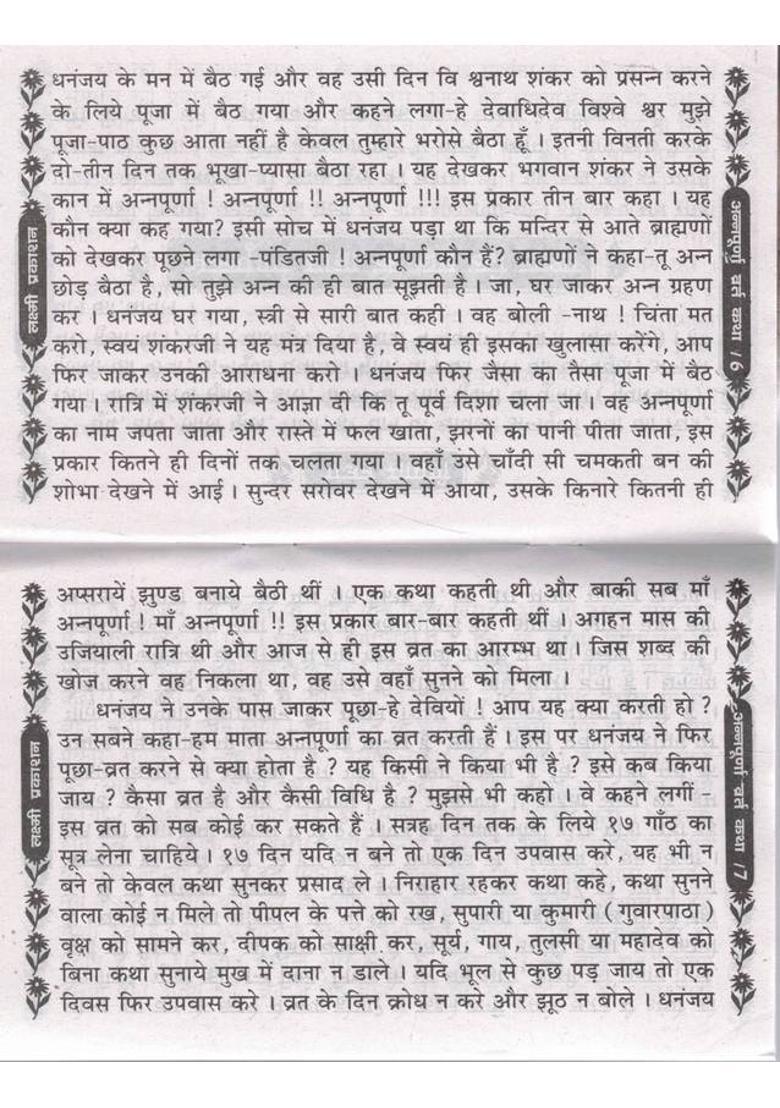 धनंजय के मन में बैठ गई और वह उसी दिन वि श्वनाथ शंकर को प्रसन्न करने
के लिये पूजा में बैठ गया और कहने लगा-हे देवाधिदेव विश्वे श्वर मुझे
पूजा-पाठ कुछ आता नहीं है केवल तुम्हारे भरोसे बैठा हूँ । इतनी विनती करके
दो-तीन दिन तक भूखा-प्यासा बैठा रहा । यह देखकर भगवान शंकर ने उसके
कान में अन्नपूर्णा ! अन्नपूर्णा !! अन्नपूर्णा !!! इस प्रकार तीन बार कहा । यह
कौन क्या कह गया? इसी सोच में धनंजय पड़ा था कि मन्दिर से आते ब्राह्मणों
को देखकर पूछने लगा -पंडितजी ! अन्नपूर्णा कौन हैं? ब्राह्मणों ने कहा-तू अन्न
छोड़ बैठा है, सो तुझे अन्न की ही बात सूझती है । जा, घर जाकर अन्न ग्रहण
कर । धनंजय घर गया, स्त्री से सारी बात कही । वह बोली -नाथ ! चिंता मत
करो, स्वयं शंकरजी ने यह मंत्र दिया है, वे स्वयं ही इसका खुलासा करेंगे, आप
फिर जाकर उनकी आराधना करो । धनंजय फिर जैसा का तैसा पूजा में बैठ
गया । रात्रि में शंकरजी ने आज्ञा दी कि तू पूर्व दिशा चला जा । वह अन्नपूर्णा
का नाम जपता जाता और रास्ते में फल खाता, झरनों का पानी पीता जाता, इस
प्रकार कितने ही दिनों तक चलता गया । वहाँ उसे चाँदी सी चमकती बन की
शोभा देखने में आई । सुन्दर सरोवर देखने में आया, उसके किनारे कितनी ही
लक्ष्मी प्रकाशन
अन्नपूर्णा व्रत कथा / 6
अप्सरायें झुण्ड बनाये बैठी थीं । एक कथा कहती थी और बाकी सब माँ
अन्नपूर्णा ! माँ अन्नपूर्णा !! इस प्रकार बार-बार कहती थीं । अगहन मास की
उजियाली रात्रि थी और आज से ही इस व्रत का आरम्भ था । जिस शब्द की
खोज करने वह निकला था, वह उसे वहाँ सुनने को मिला ।
धनंजय ने उनके पास जाकर पूछा-हे देवियों ! आप यह क्या करती हो ?
उन सबने कहा-हम माता अन्नपूर्णा का व्रत करती हैं । इस पर धनंजय ने फिर
पूछा-व्रत करने से क्या होता है ? यह किसी ने किया भी है ? इसे कब किया
जाय ? कैसा व्रत है और कैसी विधि है ? मुझसे भी कहो । वे कहने लगीं -
इस व्रत को सब कोई कर सकते हैं । सत्रह दिन तक के लिये १७ गाँठ का
सूत्र लेना चाहिये । १७ दिन यदि न बने तो एक दिन उपवास करे, यह भी न
बने तो केवल कथा सुनकर प्रसाद ले । निराहार रहकर कथा कहे, कथा सुनने
वाला कोई न मिले तो पीपल के पत्ते को रख, सुपारी या कुमारी ( गुवारपाठा )
वृक्ष को सामने कर, दीपक को साक्षी कर, सूर्य, गाय, तुलसी या महादेव को
बिना कथा सुनाये मुख में दाना न डाले । यदि भूल से कुछ पड़ जाय तो एक
दिवस फिर उपवास करे । व्रत के दिन क्रोध न करे और झूठ न बोले । धनंजय
लक्ष्मी प्रकाशन
अन्नपूर्णा व्रत कथा / 7